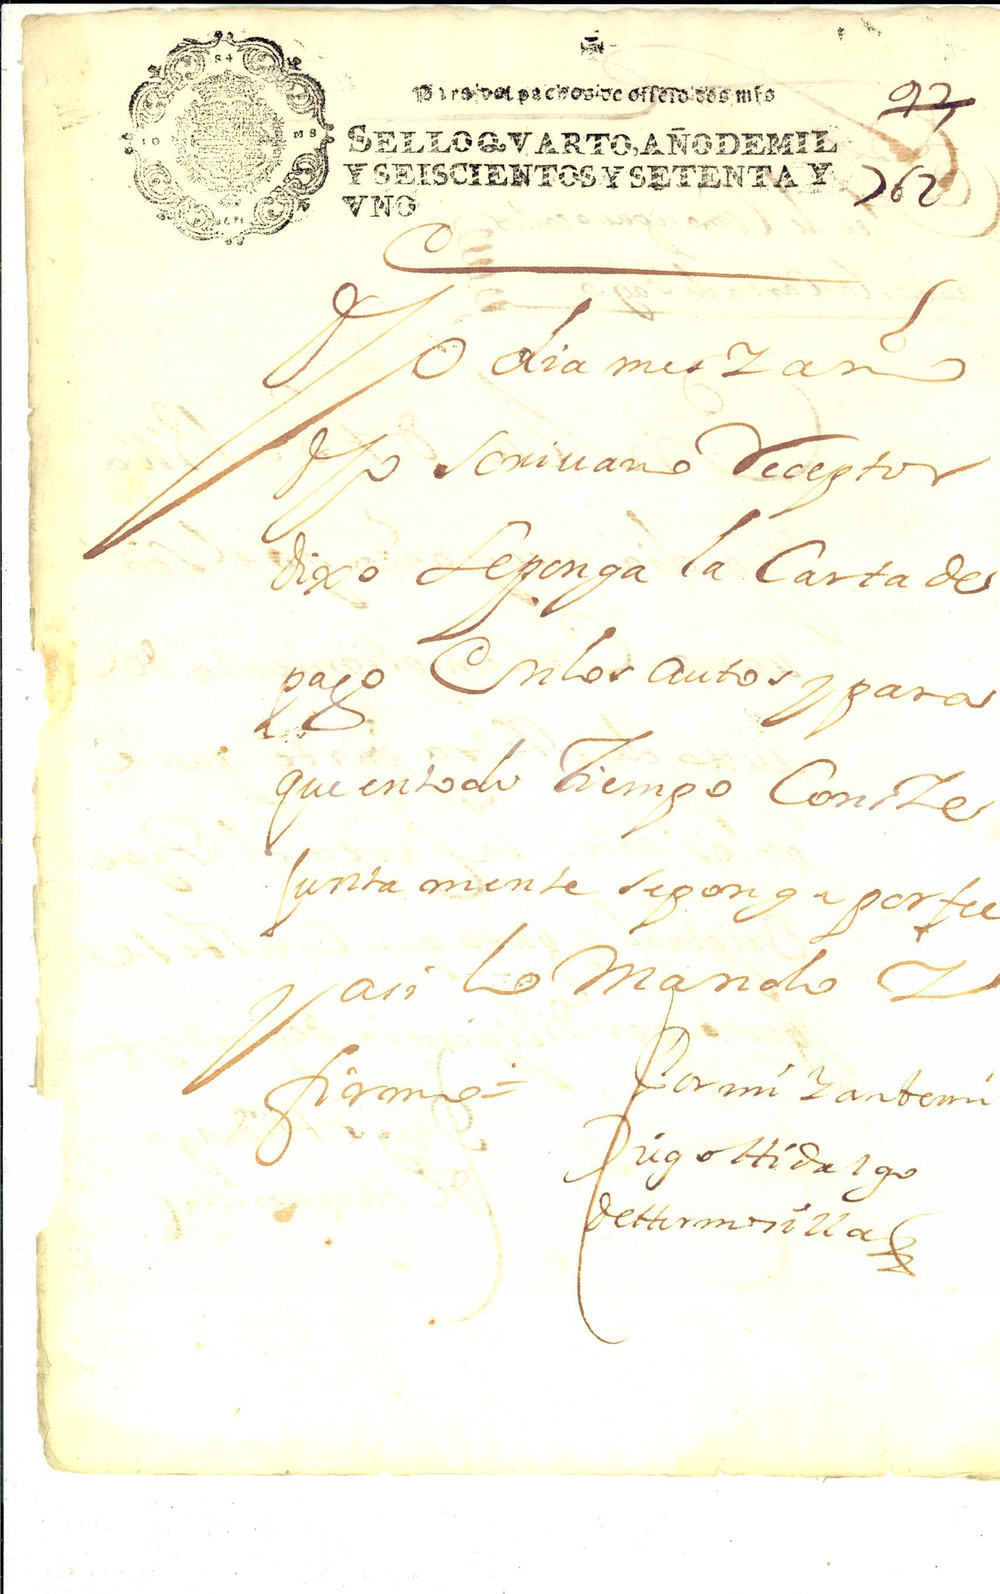 Para despachos de officio dos mrs
97
SELLO QVARTO, AÑO DE MIL
Y SEISCIENTOS Y SETENTA Y
VNO
262
dho dia mes z año
dho scriuano Receptor
dixo se ponga la Carta de
pago En los autos y para
que en todo Tiempo Conste
Juntamente se ponga por fee
y asi lo Mando z
firmo =
Por mi z ante mi
Diego Hidalgo
de Hermosilla